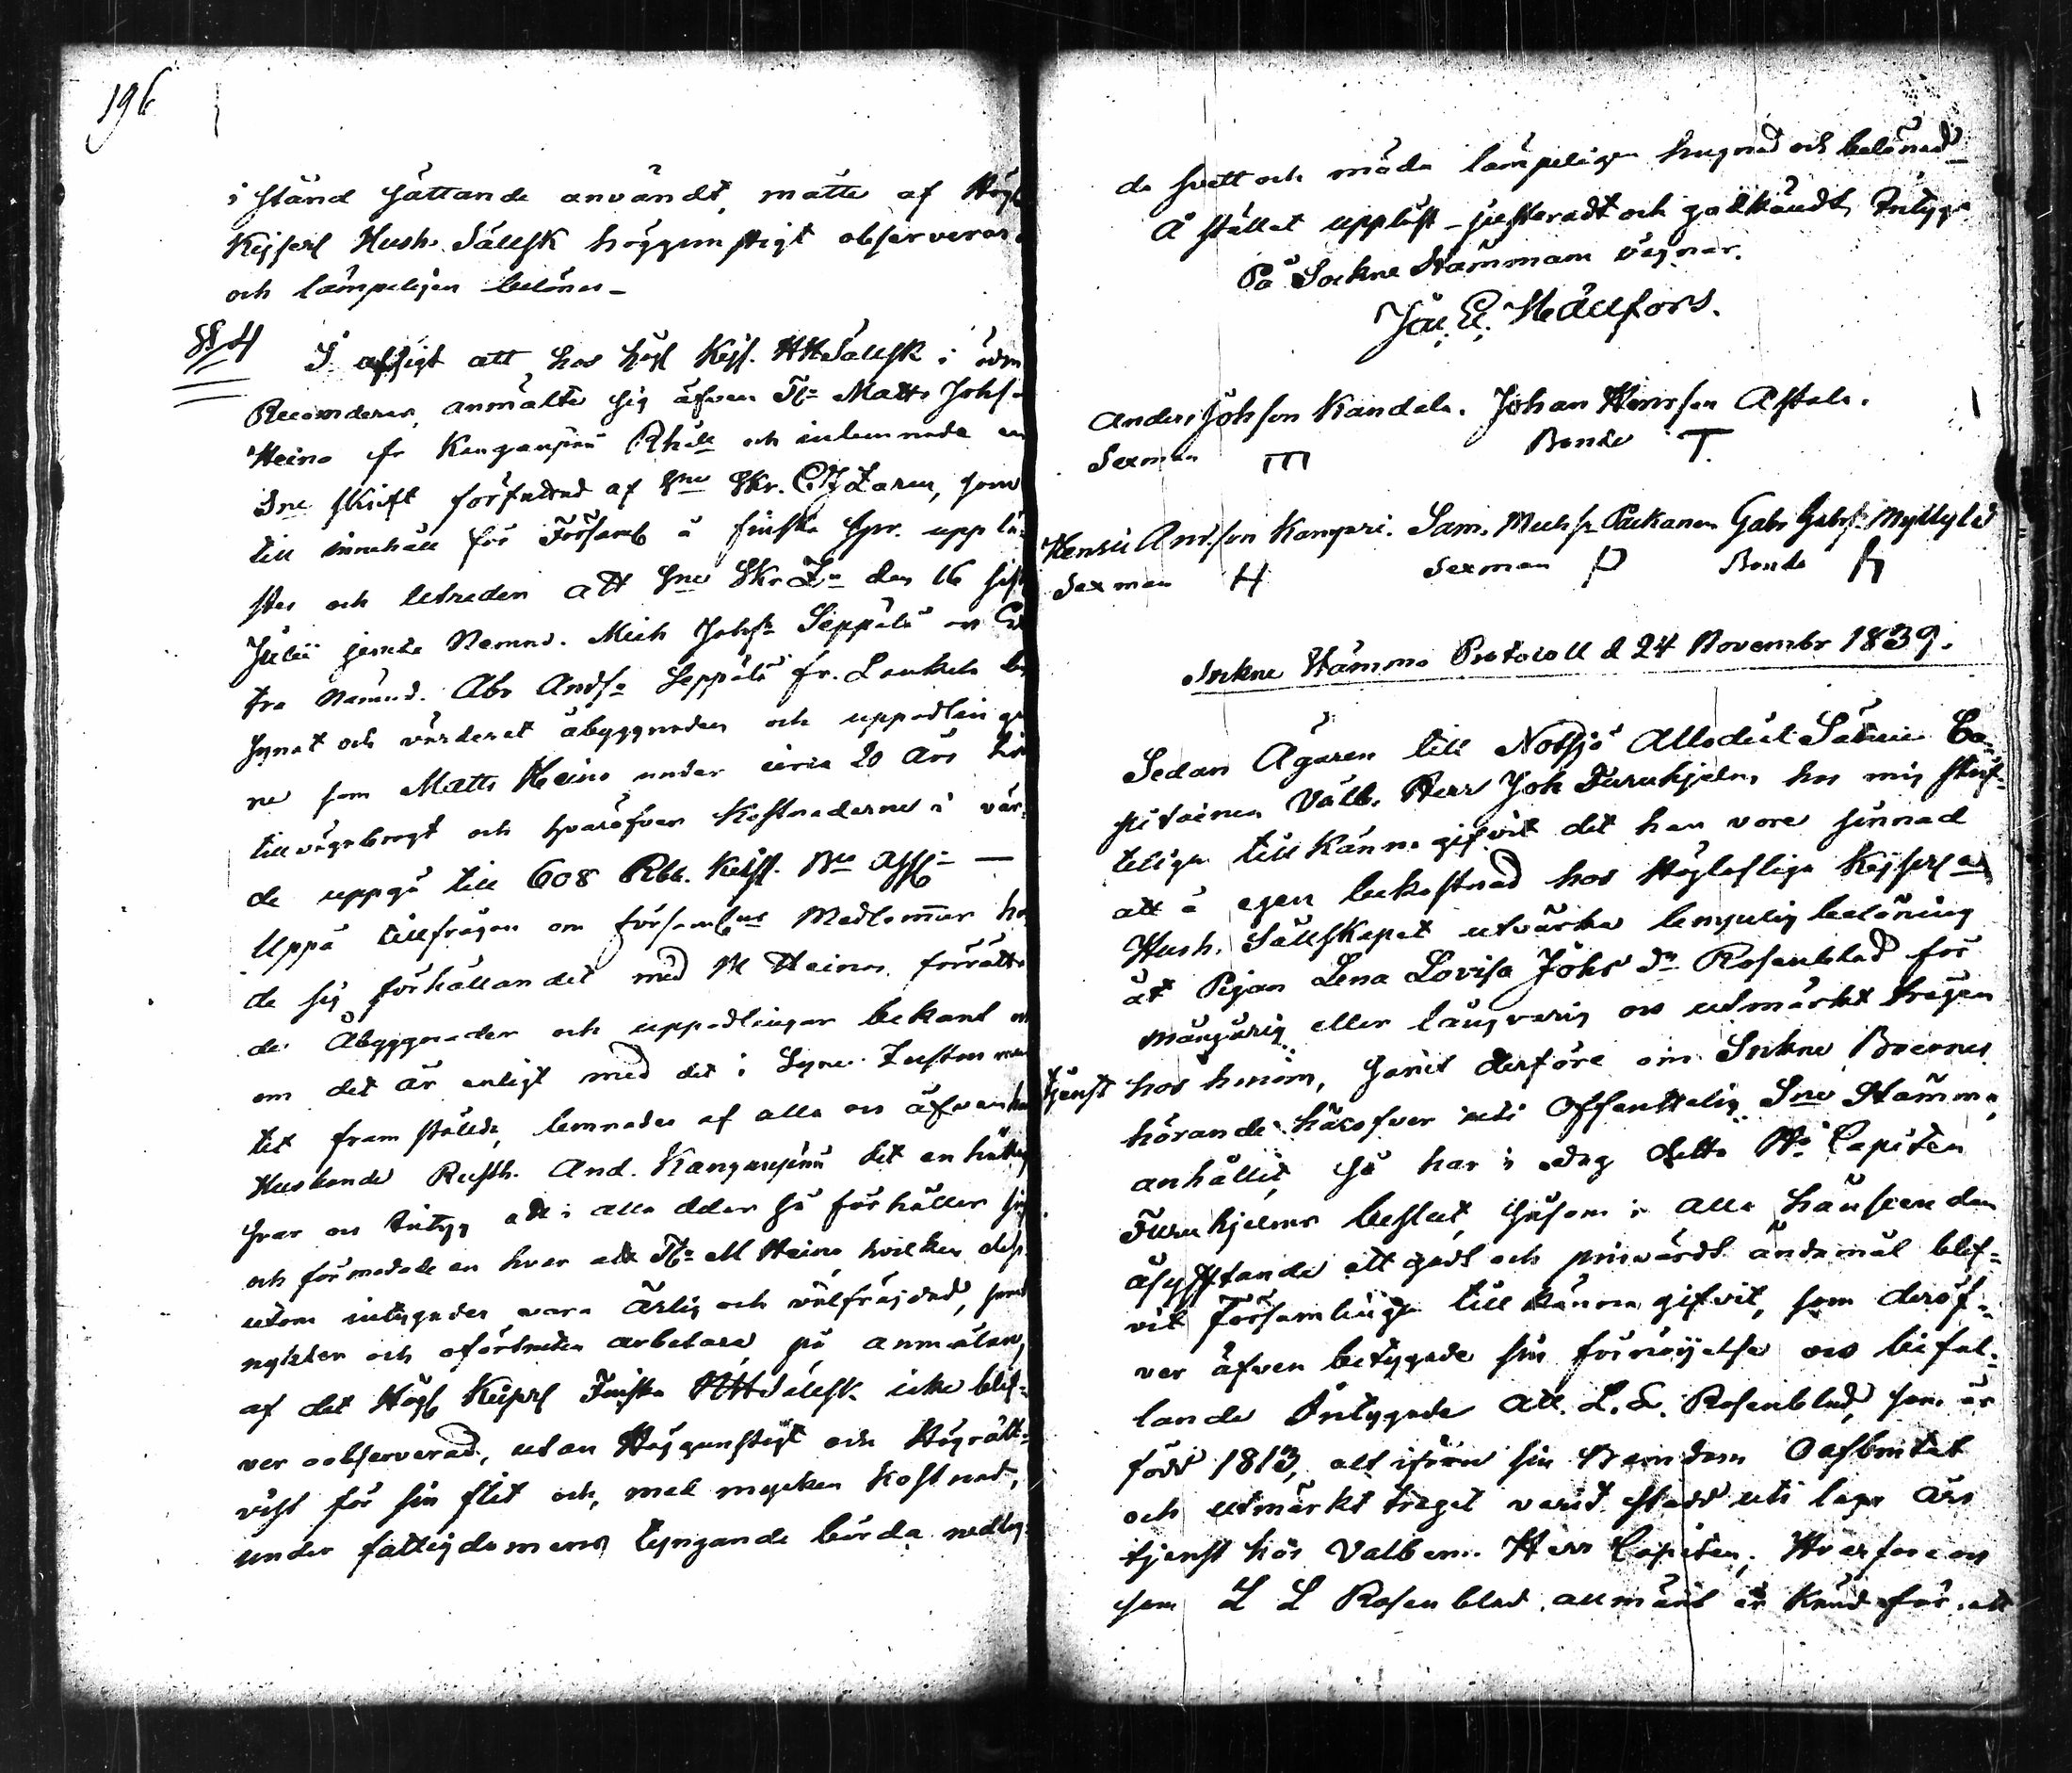 196
i stånd sättande användt, måtte af Högl
Kejserl Hush. Sällsk höggunstigt observeras
och lämpeligen belönas_
§ 4
I afsigt att hos högl Kejs. HHSällsk i ödm
Recomderas, anmälte sig äfven Tr Matts Johs
Heino fr Kanganpää Rhåll och inlemnade en
Sne skrift författad af Sne Skr. CJ Zaren, som
till innehåll för Församl å finska spr. upplä-
stes och utreden att Sne Skr Zn den 16 sist
Julii jemte Nemnd. Mich Johsn Seppälä
fra Nämnd. Abr Andsn Seppälä fr. Laukela
synat och värderat åbyggnaden och uppodlinga
ne som Matts Heino under circa 20 års
tillvägabragt och hvaröfver Kostnaderne i vär-
de uppgå till 608 Rbl. Bco Ass —
Uppå tillfrågan om församlns Medlemmar
de sig förhållandet med M Heinos förrätta
de Åbyggnader och uppodlingar bekant
om det är enligt med det i Syne Instrumen
tet framstälda, lemnades af alla
Rusth. And. Kanganpää det enhällig
svar och Intyg att i alla delar så förhåller sig
och förmodade en hvar att Tr M Heino, hvilken dess
utom intygades vara Ärlig och välfräjdad, samt
nykter och oförtruten arbetare, på anmälan,
af det Högl Kejserl Finska HHSällsk icke blif-
ver oobserverad, utan Höggunstigt och Högrätt-
vist för sin flit och, med mycken Kostnad,
under fattigdomens tyngande börda nedlag-
de svett och möda lämpeligen hugnad och belönad_
Å stället uppläst - justeradt och godkändt, Intyga
På Sockne Stämmans vägnar.
Joh. E. Hällfors.
Anders Johsson Kandela. Johan Henrsson Alstala.
Sexman Bonde T.
Henric Andsson Kamppi. Sam. Michsn Paikanen Gabr Gabrsn Myllylä
Sexman H Sexman P Bonde
Sockne Stämmo Protocoll d 24 Novembr 1839.
Sedan Ägaren till Notsjö Allodial Säteri Ca-
pitainen Välb. Herr Joh Furuhjelm hos mig skrif-
teligen tillkänna gifvit det han vore sinnad
att å egen bekostnad hos Höglofliga Kejserl
Hush. Sällskapet utvärka lempelig belöning
åt Pigan Lena Lovisa Johs dr Rosenblad för
mångårig eller långvarig och utmärkt trägen
tjenst hos honom, samt derföre om Sockne Boernes
hörande häröfver uti Offentelig Sne Stämma,
anhållit, så har i dag detta Hr Capiten
Furuhjelms beslut, såsom i alla hänseenden
åsyftande ett godt och prisvärdt ändamål blif-
vit församlingen tillkänna gifvit, som deröf-
ver äfven betygade sin förnöijelse och bifal-
lande Intygade att L. L. Rosenblad, som är
född 1813, alt ifrån sin Barndom Oafbrutet
och utmärkt träget varit stadd uti laga års
tjenst hos Välbem. Herr Capiten, Hvarföre och
som L L Rosenblad allmänt är Känd för ett